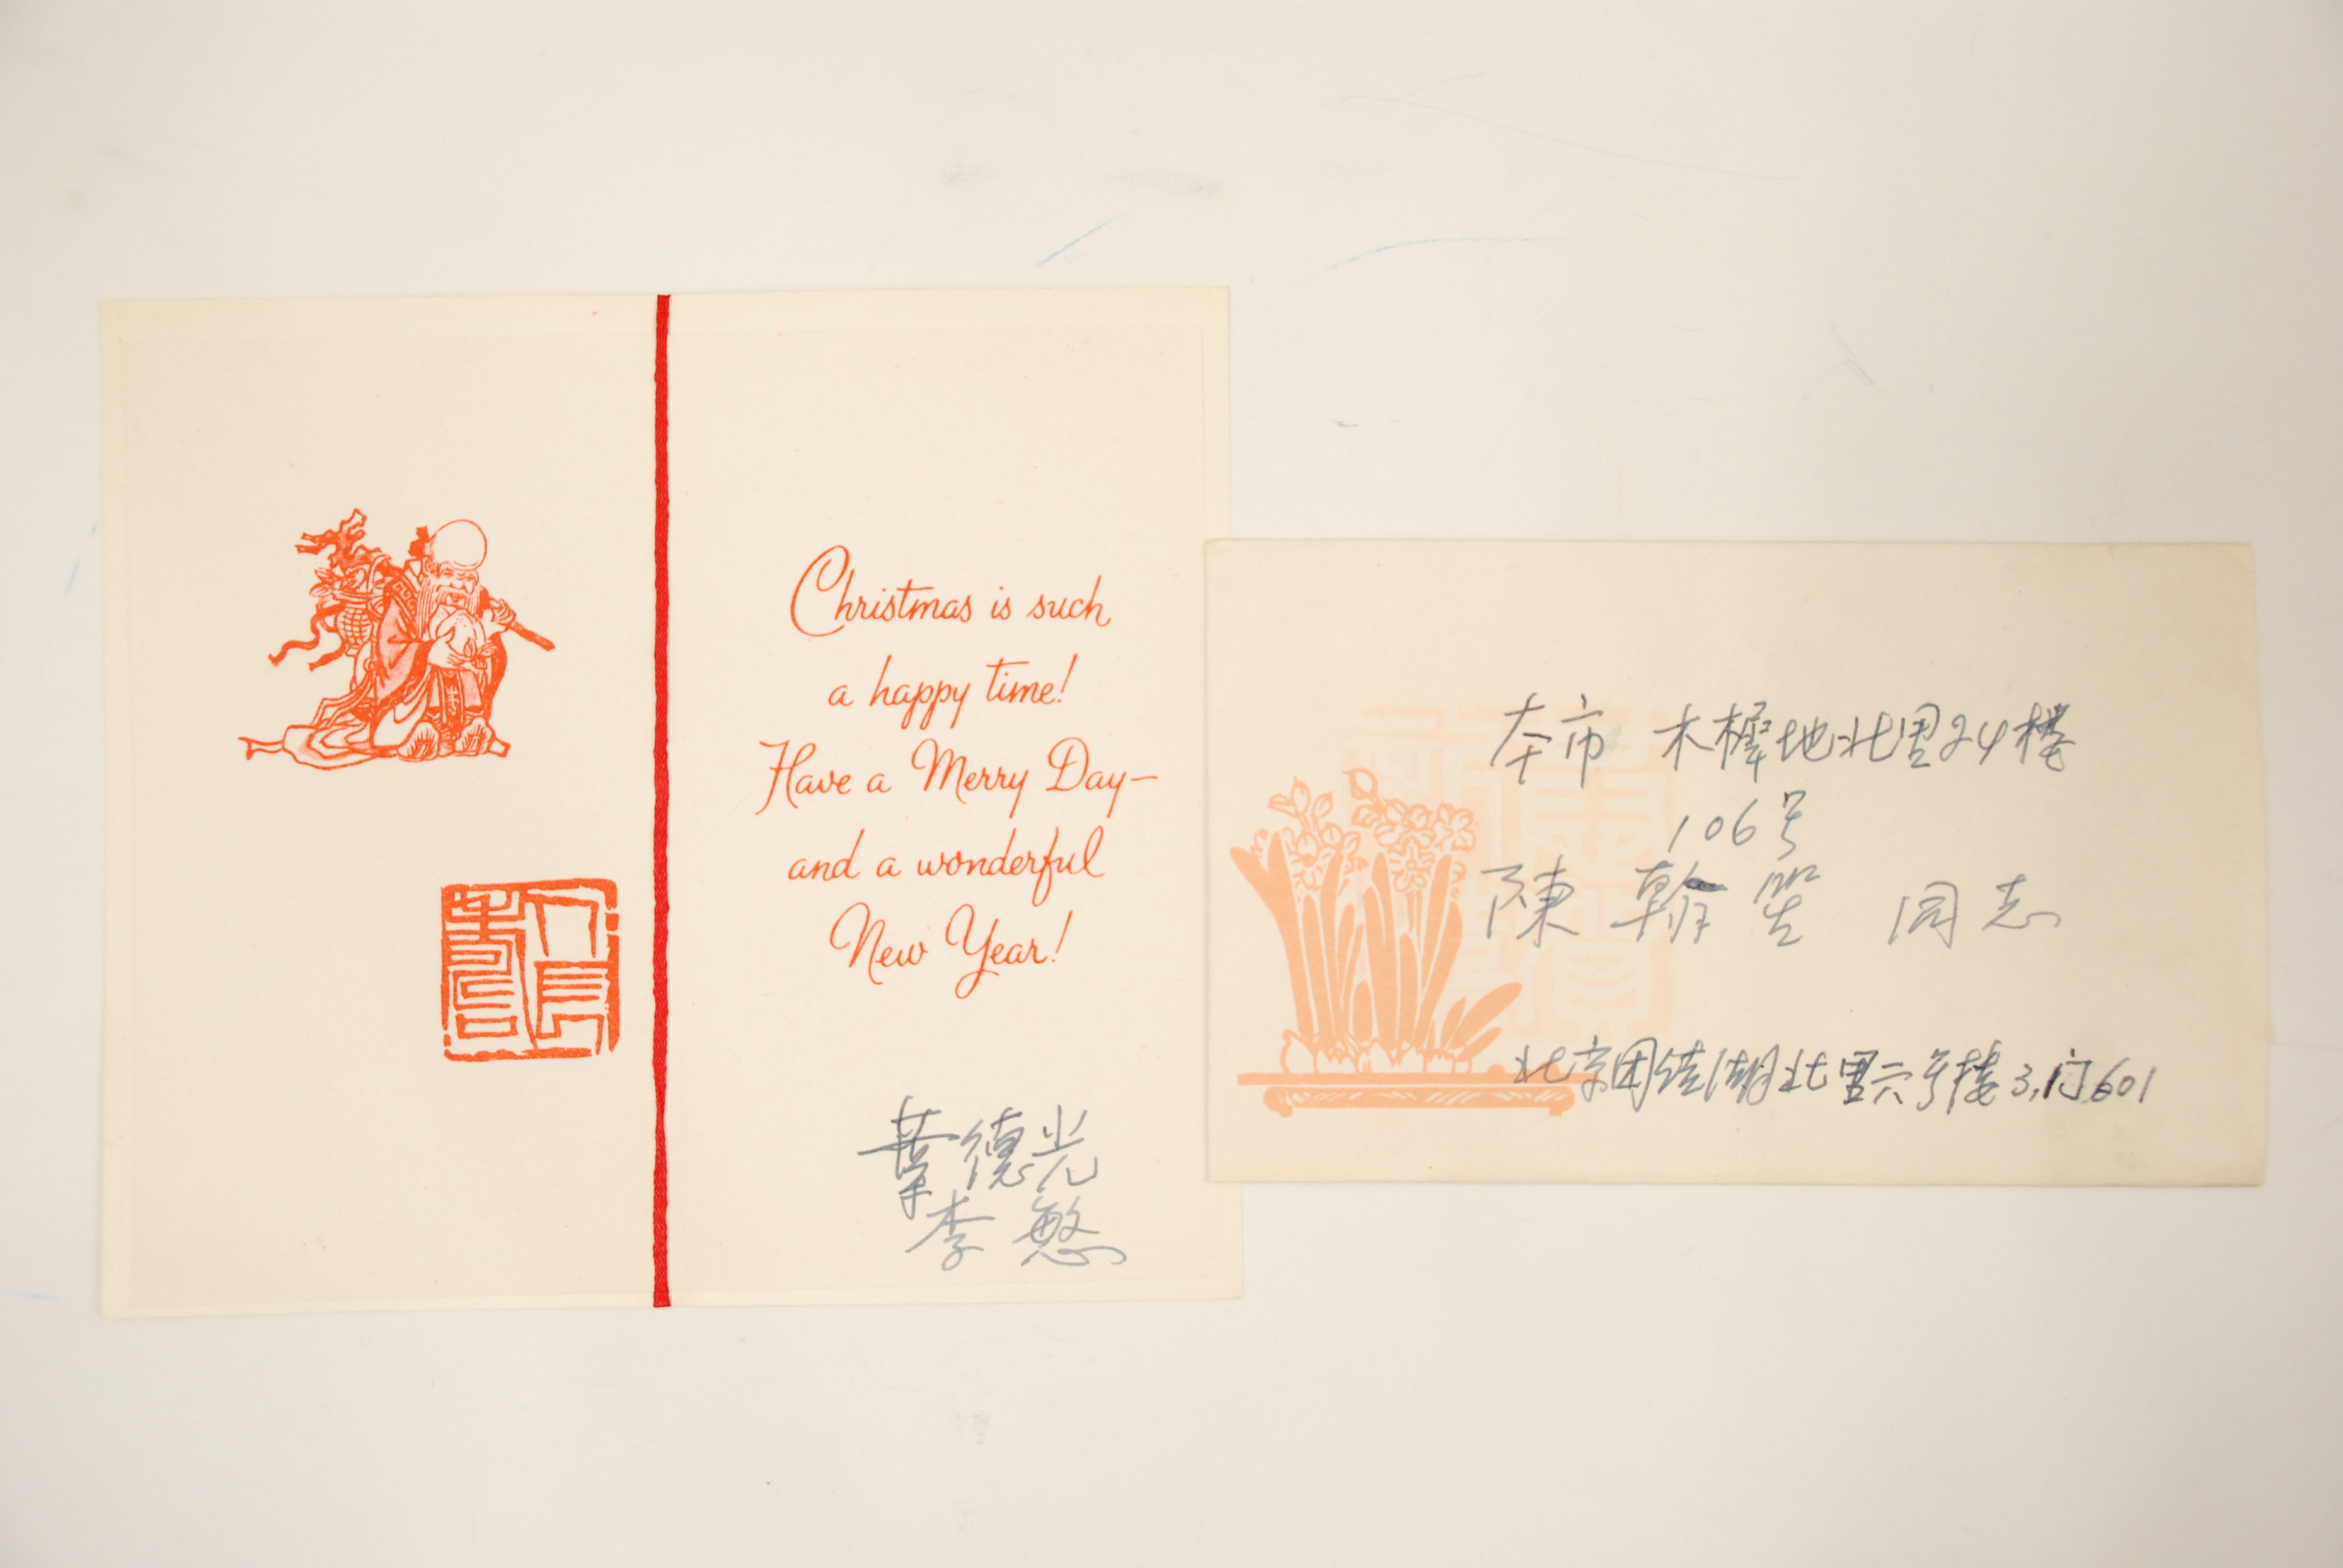 Christmas is such
a happy time!
Have a Merry Day—
and a wonderful
New Year!
葉德光
李慜
本市 木樨地北里24楼
106号
陳翰笙 同志
北京团结湖北里六号楼3,门601